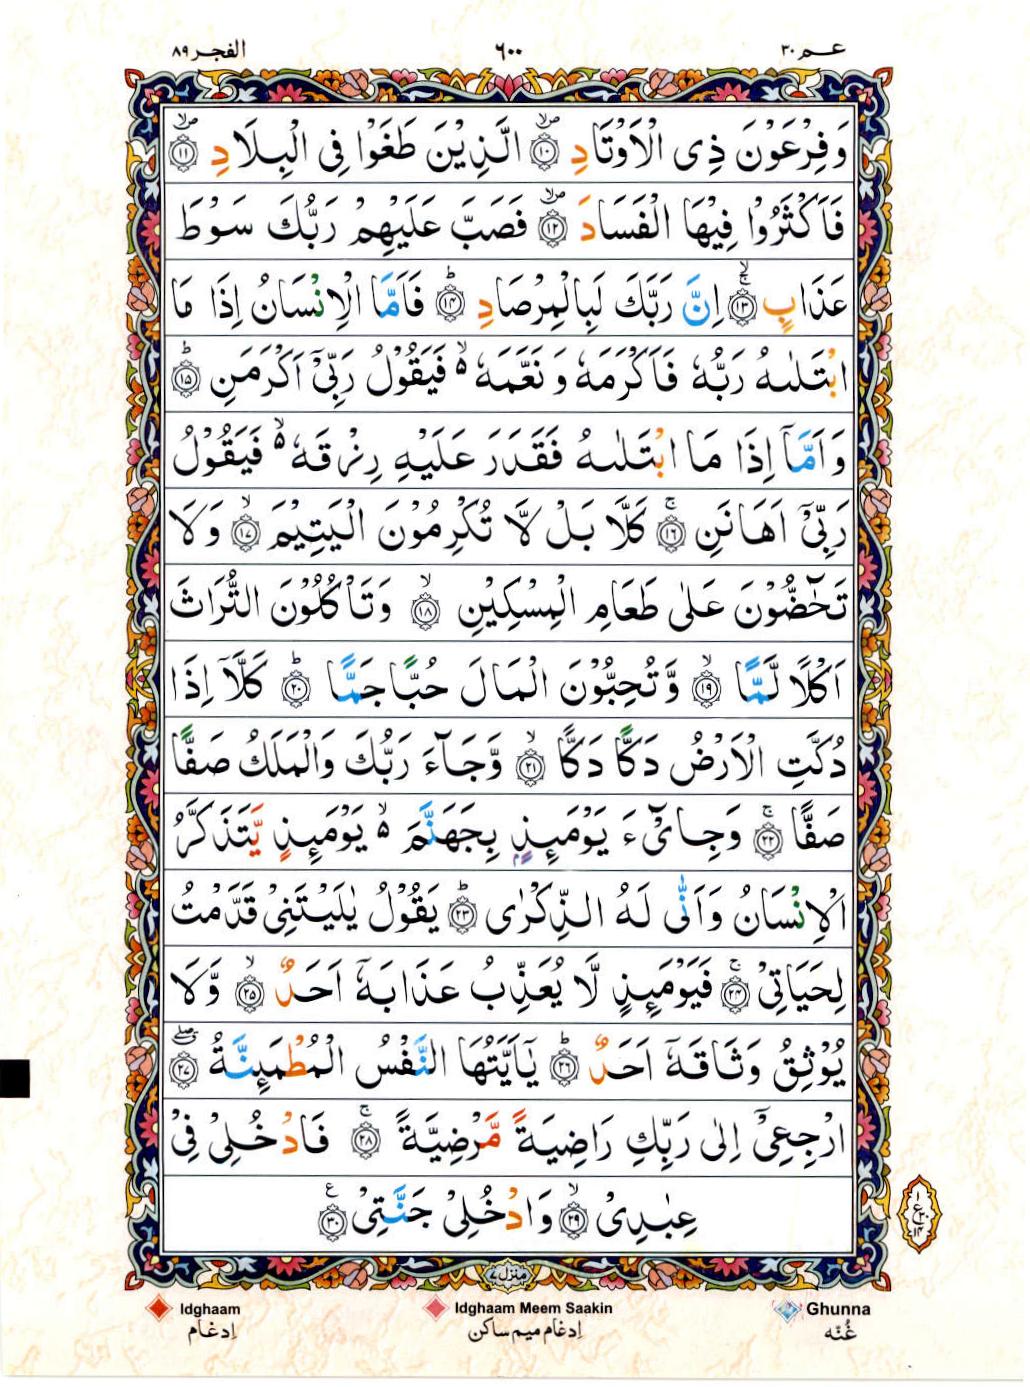 الفجر ٨٩
٦٠٠
عم ٣٠
وَفِرْعَوْنَ ذِی الْاَوْتَادِ ۝١٠ الَّذِیْنَ طَغَوْا فِی الْبِلَادِ ۝١١
فَاَكْثَرُوْا فِیْهَا الْفَسَادَ ۝١٢ فَصَبَّ عَلَیْهِمْ رَبُّكَ سَوْطَ
عَذَابٍ ۝١٣ اِنَّ رَبَّكَ لَبِالْمِرْصَادِ ۝١٤ فَاَمَّا الْاِنْسَانُ اِذَا مَا
ابْتَلٰىهُ رَبُّهٗ فَاَكْرَمَهٗ وَ نَعَّمَهٗ ۙ۬ فَیَقُوْلُ رَبِّیْۤ اَكْرَمَنِ ۝١٥
وَاَمَّاۤ اِذَا مَا ابْتَلٰىهُ فَقَدَرَ عَلَیْهِ رِزْقَهٗ ۙ۬ فَیَقُوْلُ
رَبِّیْۤ اَهَانَنِ ۝١٦ كَلَّا بَلْ لَّا تُكْرِمُوْنَ الْیَتِیْمَ ۝١٧ وَلَا
تَحٰٓضُّوْنَ عَلٰی طَعَامِ الْمِسْكِیْنِ ۝١٨ وَتَاْكُلُوْنَ التُّرَاثَ
اَكْلًا لَّمًّا ۝١٩ وَّتُحِبُّوْنَ الْمَالَ حُبًّا جَمًّا ۝٢٠ كَلَّاۤ اِذَا
دُكَّتِ الْاَرْضُ دَكًّا دَكًّا ۝٢١ وَّجَآءَ رَبُّكَ وَالْمَلَكُ صَفًّا
صَفًّا ۝٢٢ وَجِایْٓءَ یَوْمَىِٕذٍۭ بِجَهَنَّمَ ۙ۬ یَوْمَىِٕذٍ یَّتَذَكَّرُ
الْاِنْسَانُ وَاَنّٰی لَهُ الذِّكْرٰی ۝٢٣ یَقُوْلُ یٰلَیْتَنِیْ قَدَّمْتُ
لِحَیَاتِیْ ۝٢٤ فَیَوْمَىِٕذٍ لَّا یُعَذِّبُ عَذَابَهٗۤ اَحَدٌ ۝٢٥ وَّلَا
یُوْثِقُ وَثَاقَهٗۤ اَحَدٌ ۝٢٦ یٰۤاَیَّتُهَا النَّفْسُ الْمُطْمَىِٕنَّةُ ۝٢٧
ارْجِعِیْۤ اِلٰی رَبِّكِ رَاضِیَةً مَّرْضِیَّةً ۝٢٨ فَادْخُلِیْ فِیْ
عِبٰدِیْ ۝٢٩ وَادْخُلِیْ جَنَّتِیْ ۝٣٠
منزل ٧
Idghaam
Idghaam Meem Saakin
Ghunna
اِدغام
اِدغام میم ساکن
غُنّه